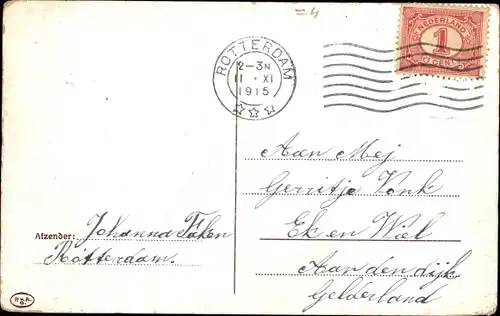 =4
NEDERLAND
1
CENT
ROTTERDAM
2-3N
11 · XI
1915
Aan Mej
Gerritje Vonk
Ek en Wiel
Aan den dijk
Gelderland
Afzender: Johanna
Rotterdam.